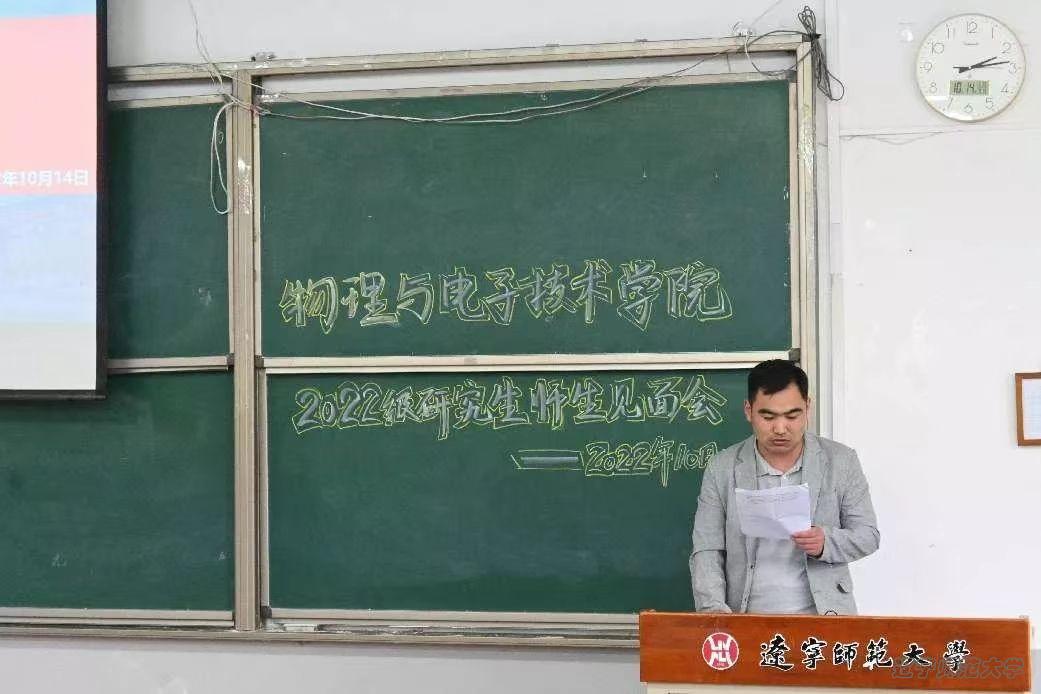 年10月14日
物理与电子技术学院
2022级研究生师生见面会
——2022年10月
12
1
2
3
4
5
6
7
8
9
10
11
10.14
遼寧師範大學
辽宁师范大学